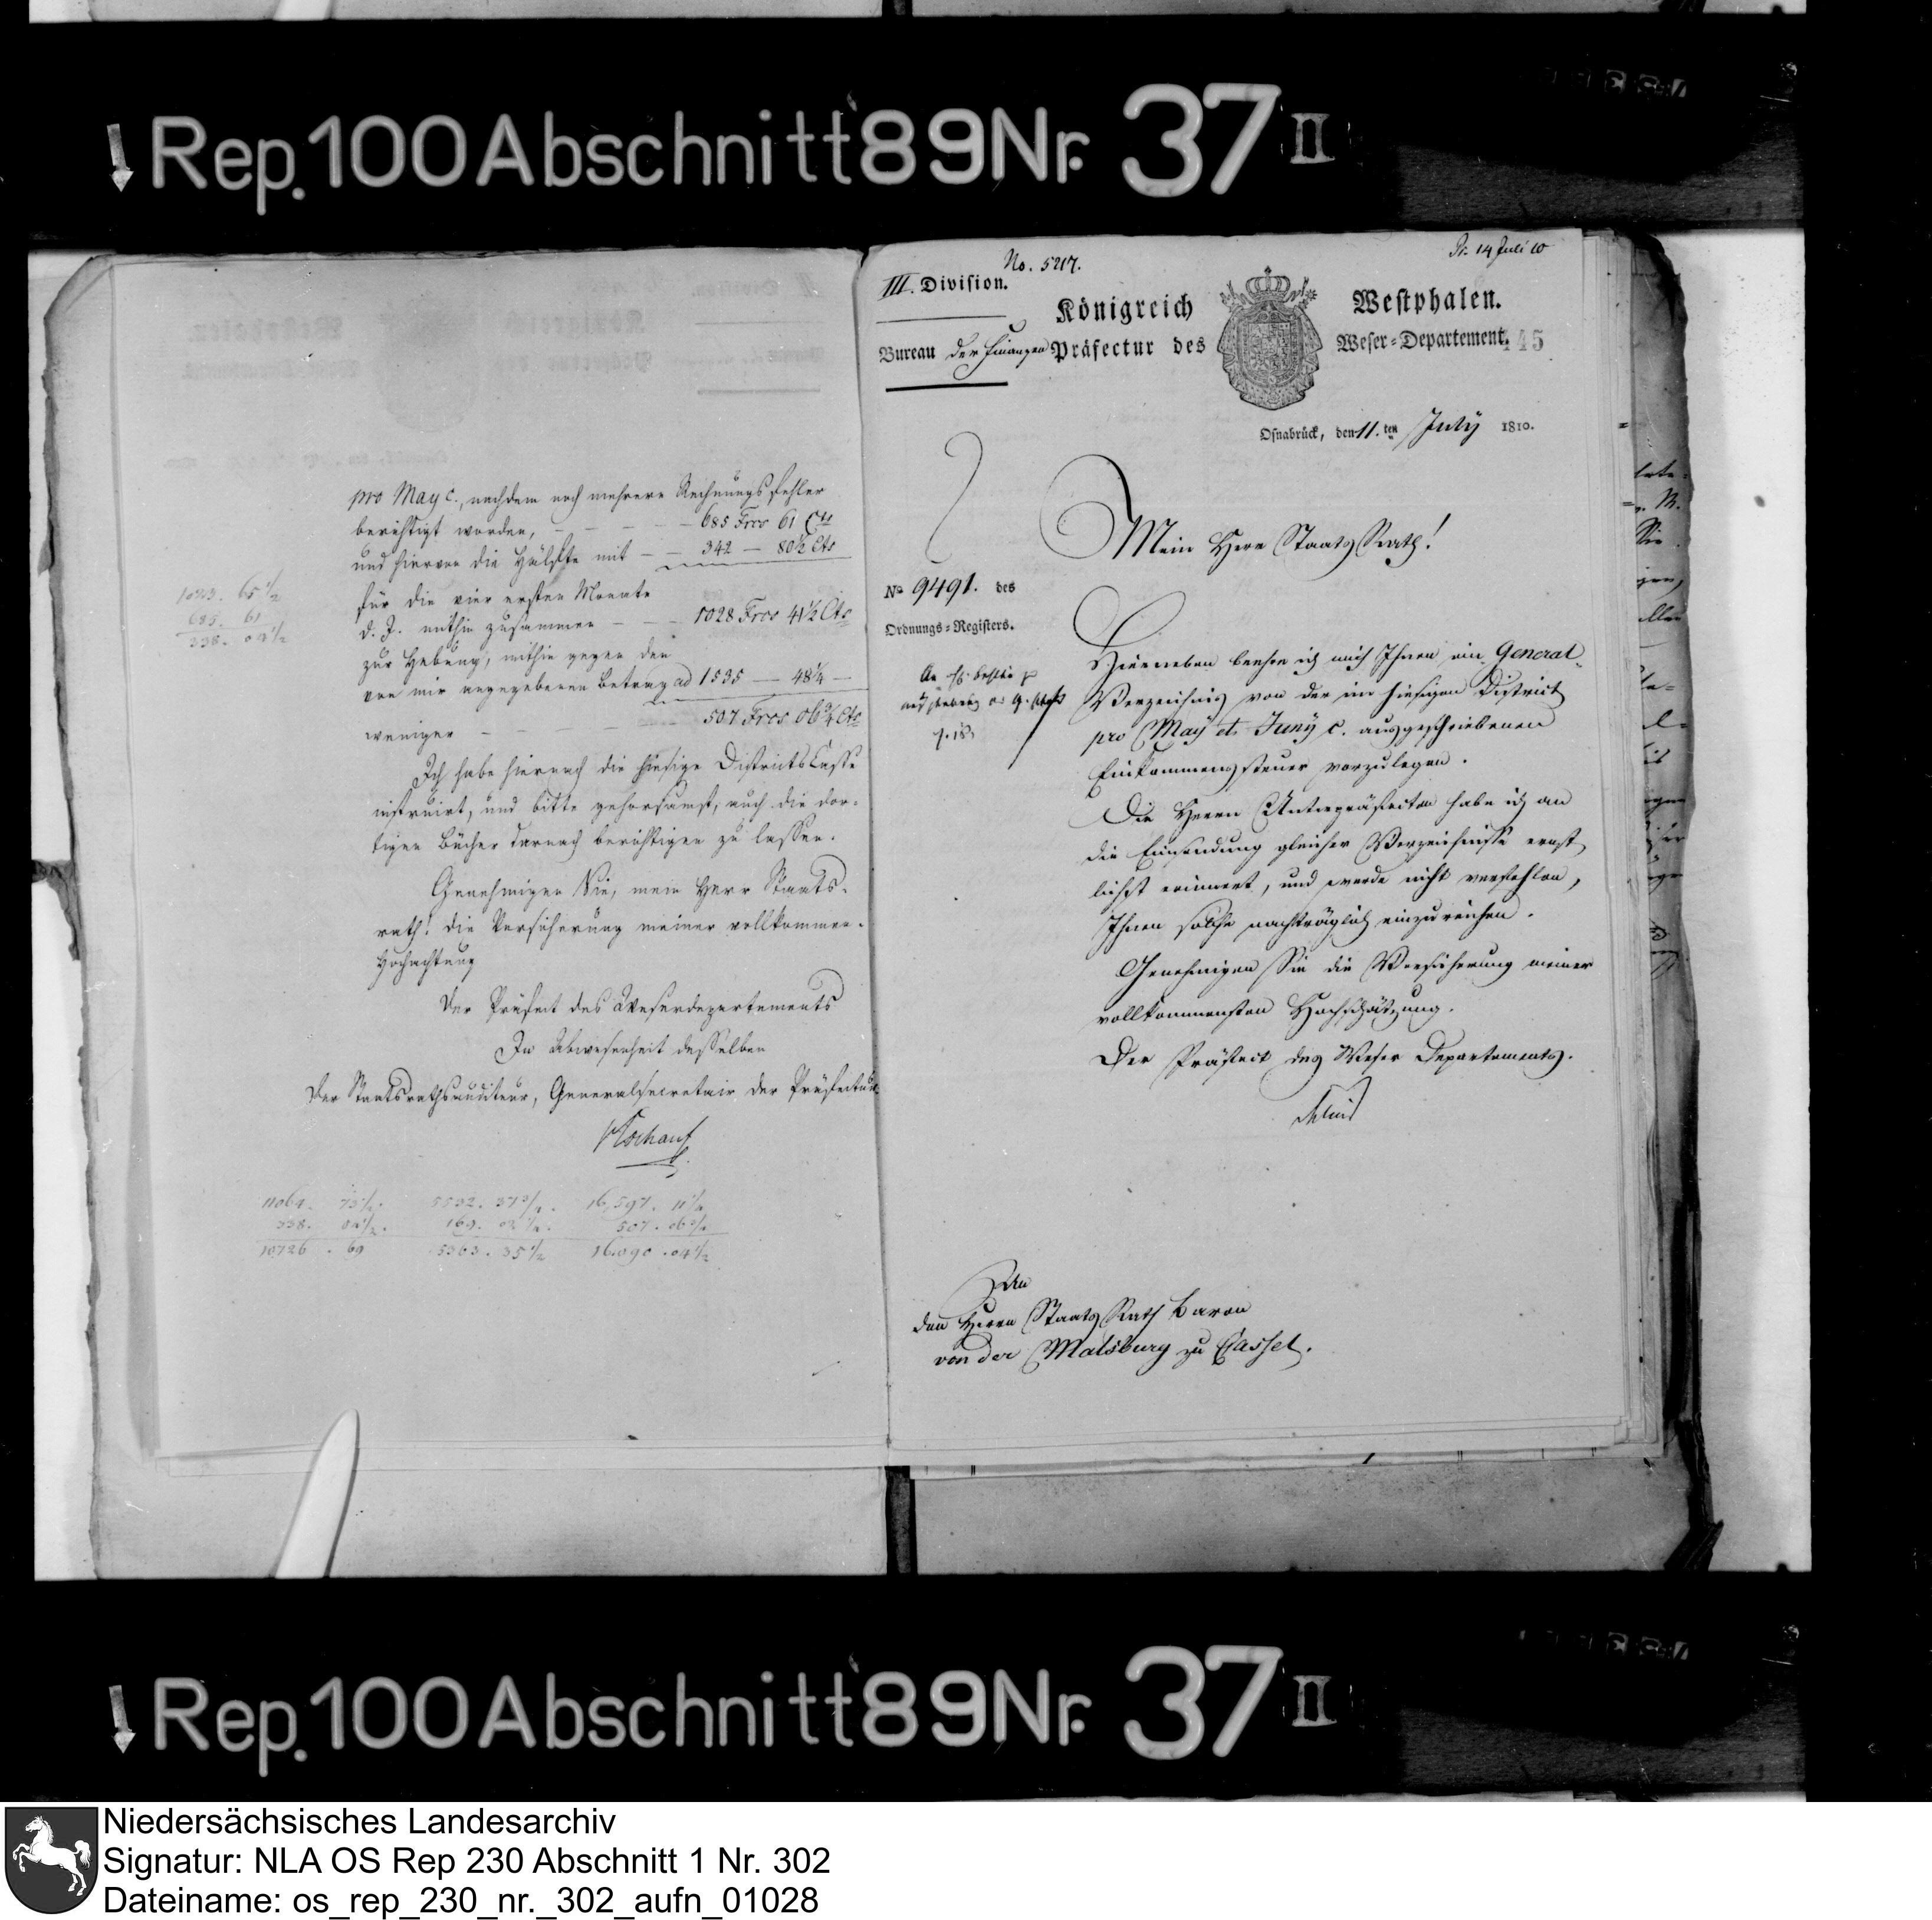 Rep. 100 Abschnitt 89 Nr. 37 II
pro May c., nachdem noch mehrere Rechnungsfehler
berichtigt worden, – – – – 685 Frcs 61 Cts
und hiervon die Hälfte mit – – 342 – 80½ Cts
für die vier ersten Monate
d. J. mithin zusammen – – – 1028 Frcs 41½ Cts
zur Hebung, mithin gegen den
von mir angegebenen Betrag ad 1535 — 48¼ —
weniger – – – – 507 Frcs 06¾ Cts
Ich habe hiernach die hiesige Districts Casse
instruirt, und bitte gehorsamst, auch die dor-
tigen Bücher darnach berichtigen zu lassen.
Genehmigen Sie, mein Herr Staats-
rath! die Versicherung meiner vollkommen-
Hochachtung
Der Präfect des Weserdepartements
In Abwesenheit desselben
Der Staatsrathsauditeur, Generalsecretair der Präfectur
1023. 65½
685. 61
338. 04½
11064. 73½. 5532. 37¾. 16,597. 11¼
338. 04½. 169. 02¼. 507. 06¾
10726. 69 5363. 35½ 16,090. 04½
No. 5217.
Pr. 14 Juli 10
III. Division.
Königreich Westphalen.
Bureau der Finanzen Präfectur des Weser-Departement.
145
Osnabrück, den 11.ten July 1810.
Mein Herr Staats Rath!
No 9491. des
Ordnungs-Registers.
Hierneben beehre ich mich Ihnen ein General-
Verzeichnis von der im hiesigen District
pro May et Juny c. ausgeschriebenen
Einkommenssteuer vorzulegen.
Die Herren Unterpräfecten habe ich an
die Einsendung gleicher Verzeichnisse ernst-
lichst erinnert, und werde nicht verfehlen,
Ihnen solche nachträglich einzureichen.
Genehmigen Sie die Versicherung meiner
vollkommensten Hochschätzung.
Der Präfect des Weser Departements.
An
den Herrn Staats Rath Baron
von der Malsburg zu Cassel.
Rep. 100 Abschnitt 89 Nr. 37 II
Niedersächsisches Landesarchiv
Signatur: NLA OS Rep 230 Abschnitt 1 Nr. 302
Dateiname: os_rep_230_nr._302_aufn_01028